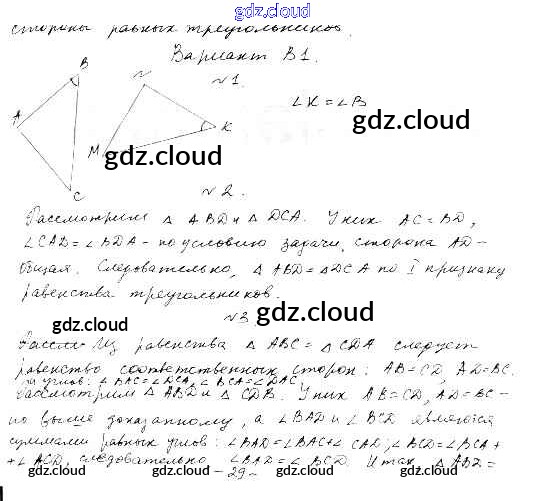 gdz.cloud
стороны равных треугольников.
Вариант В1.
№1.
B
A
C
N
K
M
∠K = ∠B
gdz.cloud
gdz.cloud
№2.
Рассмотрим △ ABD и △ DCA. У них AC = BD,
∠CAD = ∠BDA – по условию задачи, сторона AD –
общая. Следовательно, △ ABD = △DCA по I признаку
равенства треугольников.
№3.
gdz.cloud
gdz.cloud
Из равенства △ ABC = △ CDA следует
равенство соответственных сторон: AB = CD, AD = BC.
и углов: ∠BAC = ∠DCA, ∠BCA = ∠DAC.
Рассмотрим △ ABD и △ CDB. У них AB = CD, AD = BC –
по выше доказанному, а ∠BAD и ∠BCD являются
gdz.cloud gdz.cloud gdz.cloud
суммами равных углов: ∠BAD = ∠BAC + ∠CAD, ∠BCD = ∠BCA +
+ ∠ACD, следовательно ∠BAD = ∠BCD. Итак, △ ABD =
gdz.cloud gdz.cloud gdz.cloud gdz.cloud
– 29 –